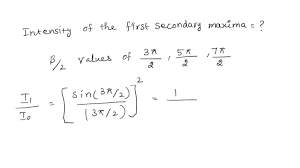 Intensity of the first secondary maxima = ?
β/2 values of 3π/2, 5π/2, 7π/2
I₁/I₀ = [sin(3π/2)/(3π/2)]² = 1/